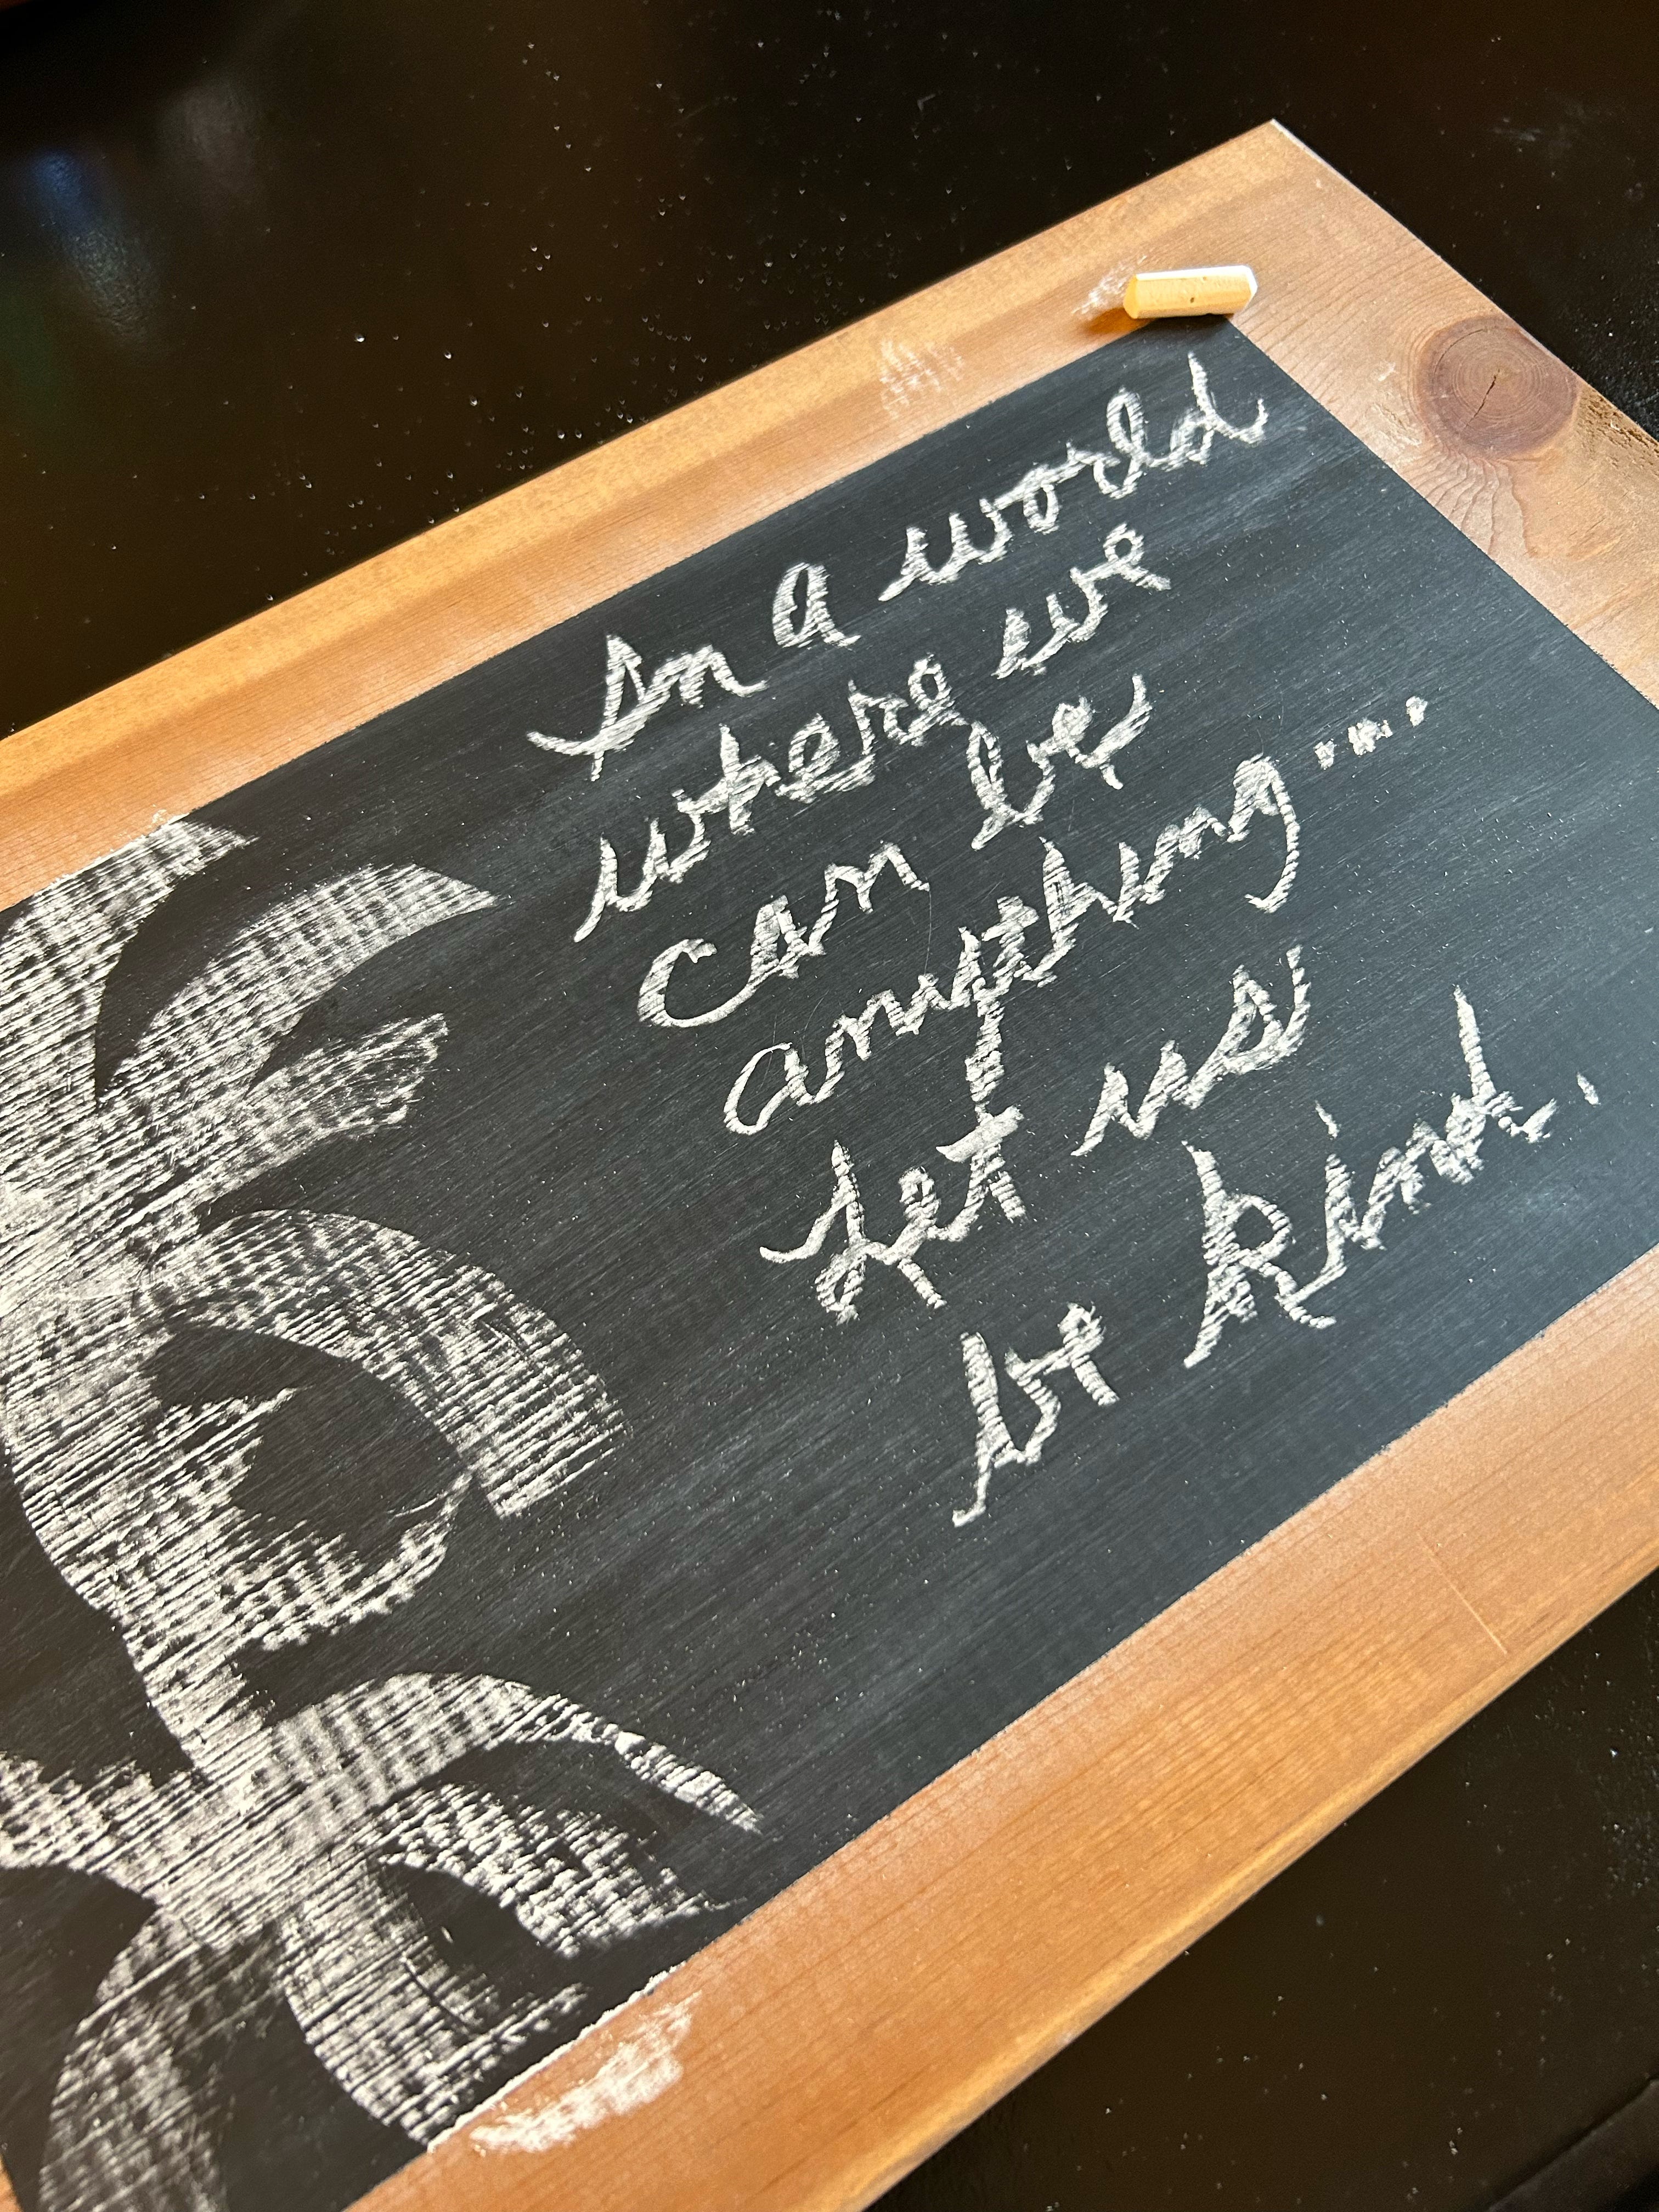 In a world
where we
can be
anything....
Let us
be kind.